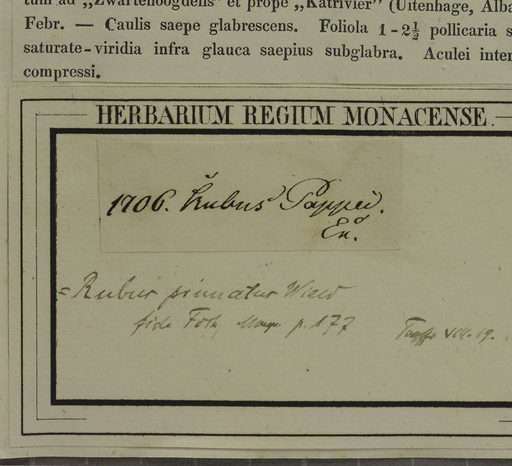 tum ad „Zwartehoogdens" et prope „Katrivier" (Uitenhage, Alba
Febr. — Caulis saepe glabrescens. Foliola 1-2½ pollicaria s
saturate-viridia infra glauca saepius subglabra. Aculei inter
compressi.
HERBARIUM REGIUM MONACENSE.
1706. Rubus Pappei.
= Rubus pinnatus Willd
fide p. 177